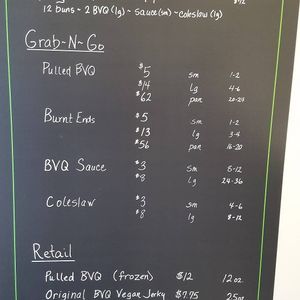 $72
12 buns ~ 2 BVQ (lg) ~ sauce (sm) ~ coleslaw (lg)
Grab-N-Go
Pulled BVQ $5 sm 1-2
$14 lg 4-6
$62 pan 20-24
Burnt Ends $5 sm 1-2
$13 lg 3-4
$56 pan 16-20
BVQ Sauce $3 sm 8-12
$8 lg 24-36
Coleslaw $3 sm 4-6
$8 lg 8-12
Retail
Pulled BVQ (frozen) $12 12oz
Original BVQ Vegan Jerky $7.75 25oz